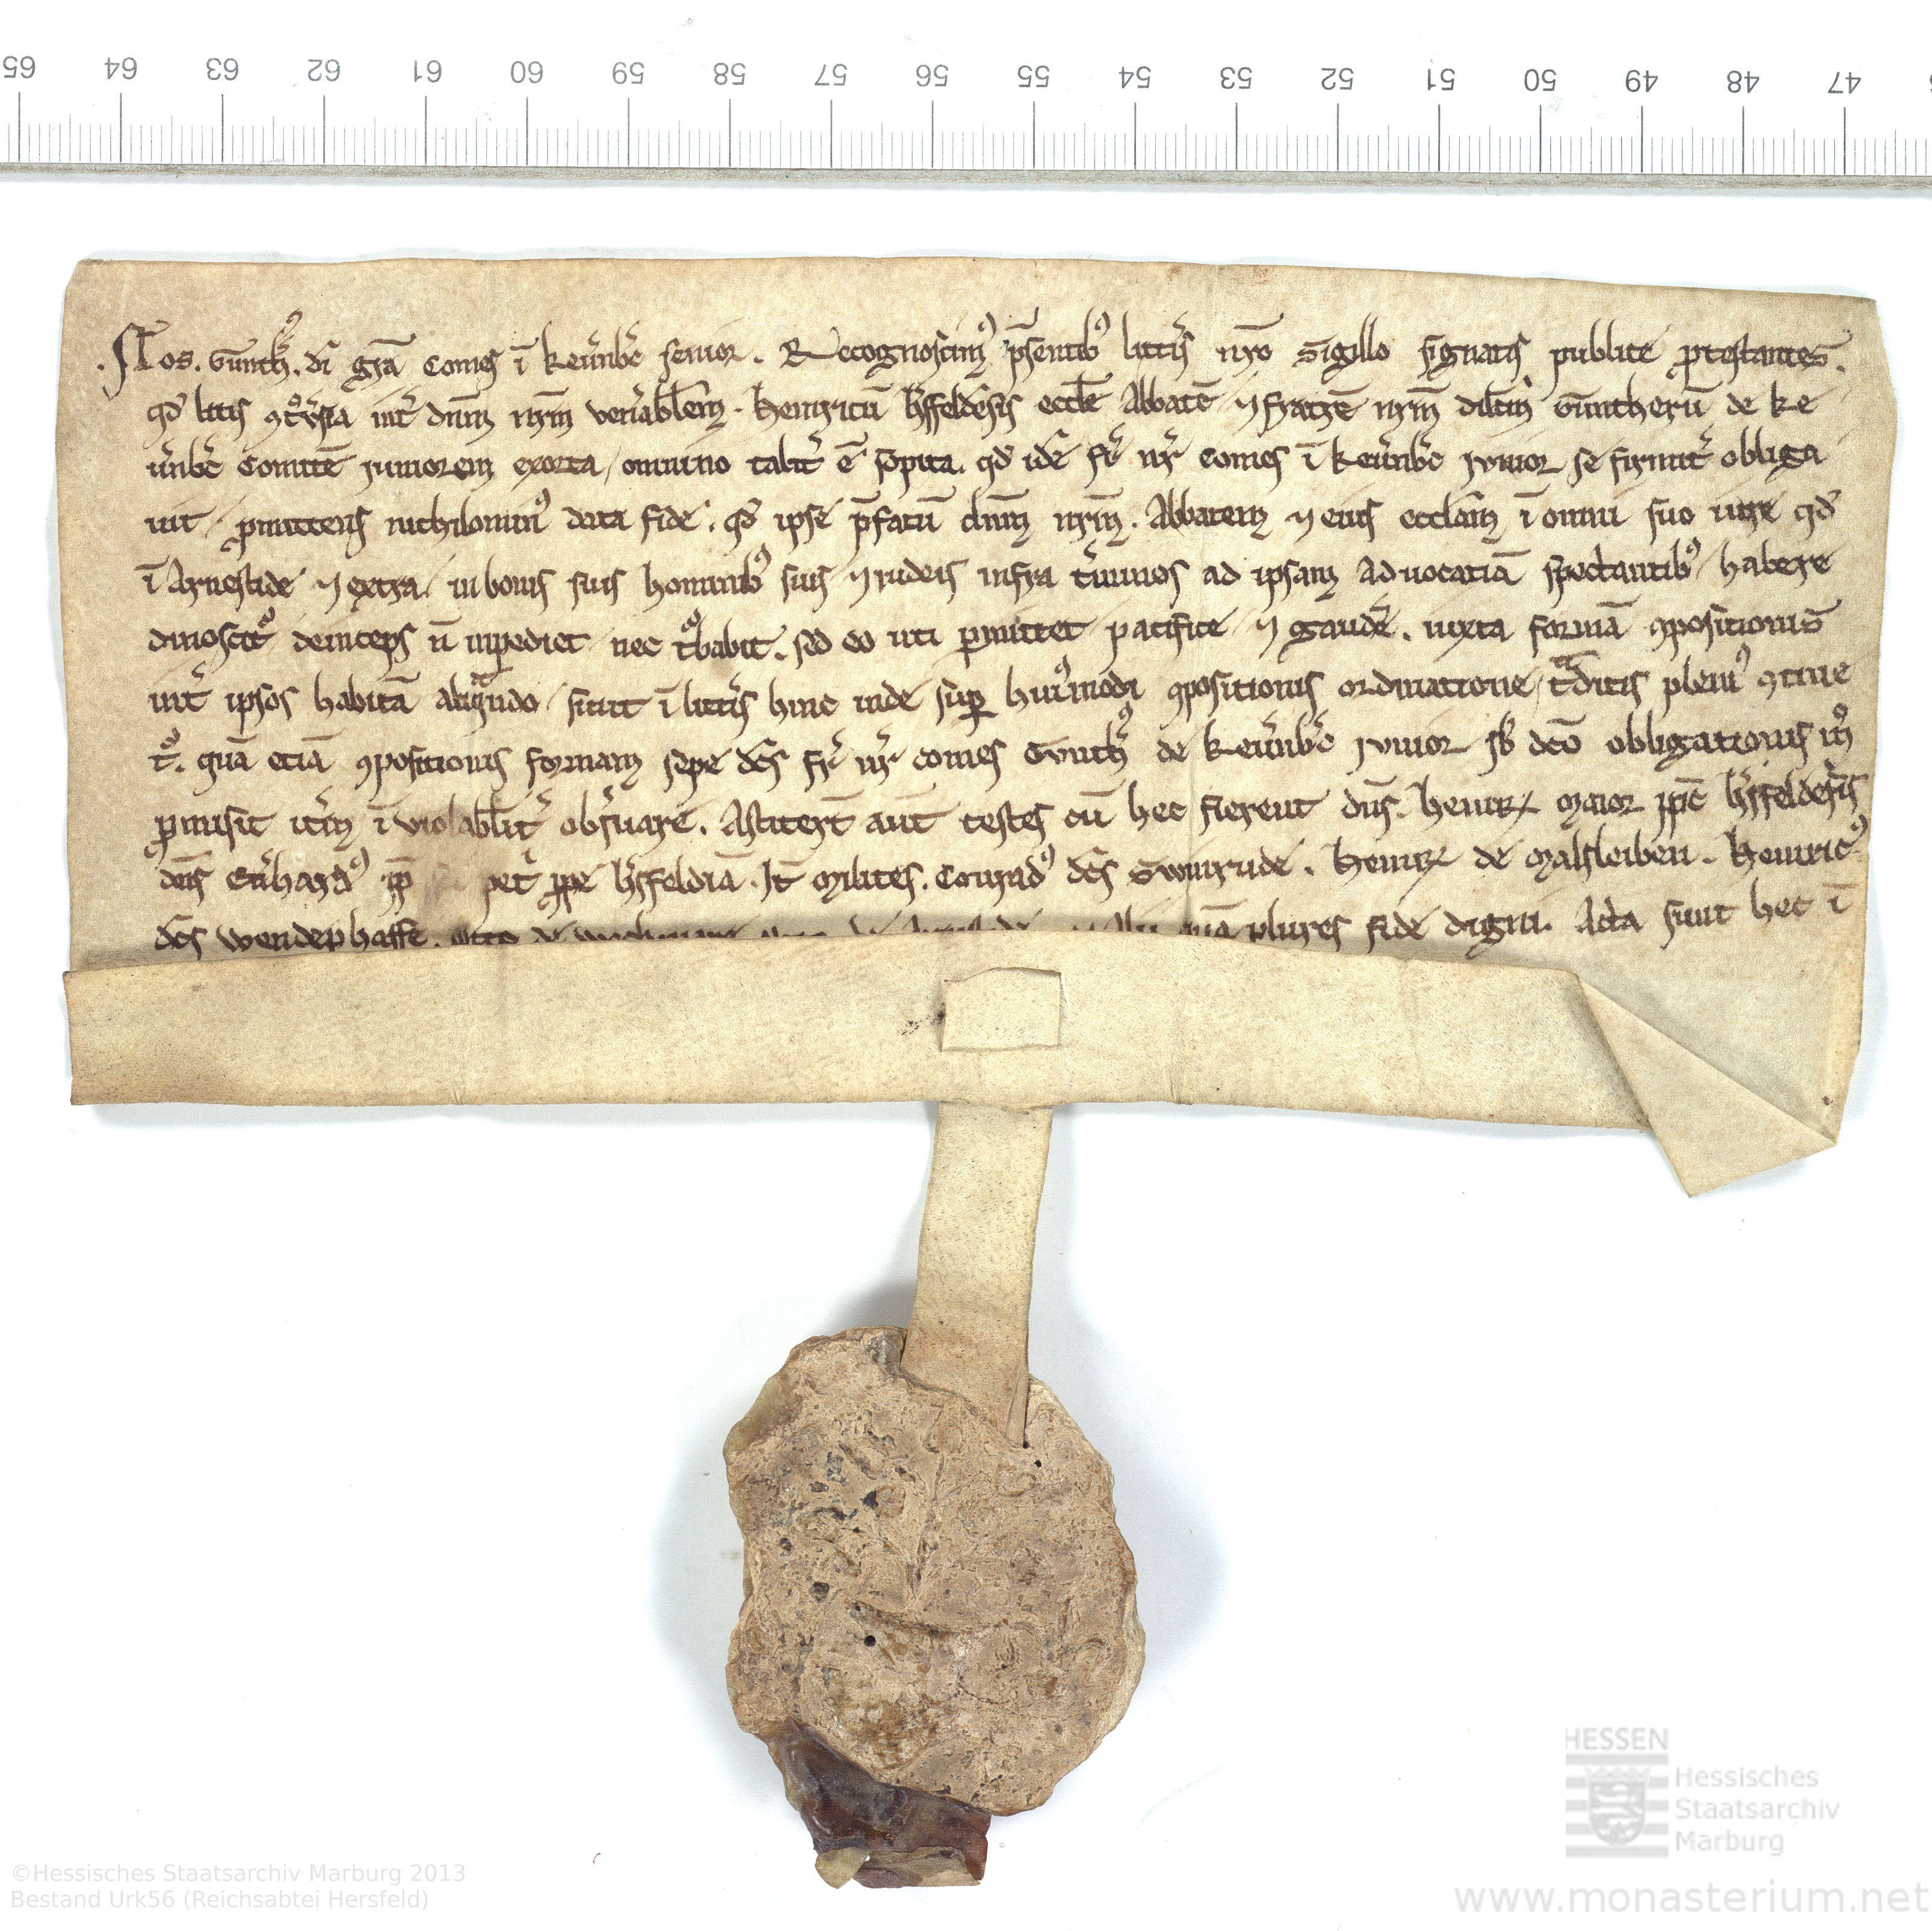 65 64 63 62 61 60 59 58 57 56 55 54 53 52 51 50 49 48 47
.Nos. Gunthꝰ. di gr̄a Comes ī keu̓nbc̓ senior. Recognoscimꝰ p̄sentibꝰ litt̓is nr̄o sigillo signatis publice ꝓtestantes.
qd̓ litis ꝯt̊u̓sia int̓ dn̄m nr̄m ven̓abilem. Heinricū h̓sfeldēsis eccl̓e Abbatē ⁊ fratrē nr̄m dilc̄m Guntherū de ke
u̓nbc̓ Comitē iuniorem exorta / omnino talit̓ ē sopita. qd̓ idē fr̄ nr̄ Comes ī keu̓nbc̓ iunior se firmit̓ obliga
uit / ꝓmittens nichilominꝰ data fide. qd̓ ipse p̄fatū dn̄m nr̄m. Abbatem ⁊ eius eccl̓am ī omni suo iure qd̓
ī Arnestide ⁊ extra. in bonis suis hominibꝰ suis ⁊ iudeis infra t̓minos ad ipsam Aduocatiā spectantibꝰ / habere
dinoscit᷑ deinceps n̄ inpediet nec t᷑babit. sed eo uti ꝑmittet pacifice ⁊ gaudē. iuxta formā ꝯpositionis
int̓ ipsos habitā aliqᵃndo / sicut ī litt̓is hinc inde suꝑ huiꝰmodi ꝯpositionis ordinatione / tᵃditis pleniꝰ ꝯtine
t᷑. quā eciā ꝯpositionis formam sepe dc̄s fr̄ nr̄ comes Gunthꝰ de keu̓nbc̓ iunior sb̓ dc̄o obligationis mͦ
ꝓmisit it̓m īuiolabilit̓ obs̓uare. Astiter̄t aut̄ testes cū hec fierent dn̄s. Heinr̄ maior h̓sfeldēsis
decꝰ Eu̓hardꝰ pet̓ ꝓpe h̓sfeldiā. Jt̄ milites. Conradꝰ dc̄s Swinrude. Heinr̄ de malsleiben. Heinricꝰ
dc̄s wendephaffe. Otto de quā plures fide digni. Acta sunt hec ī
HESSEN
Hessisches
Staatsarchiv
Marburg
©Hessisches Staatsarchiv Marburg 2013
Bestand Urk56 (Reichsabtei Hersfeld)
www.monasterium.net